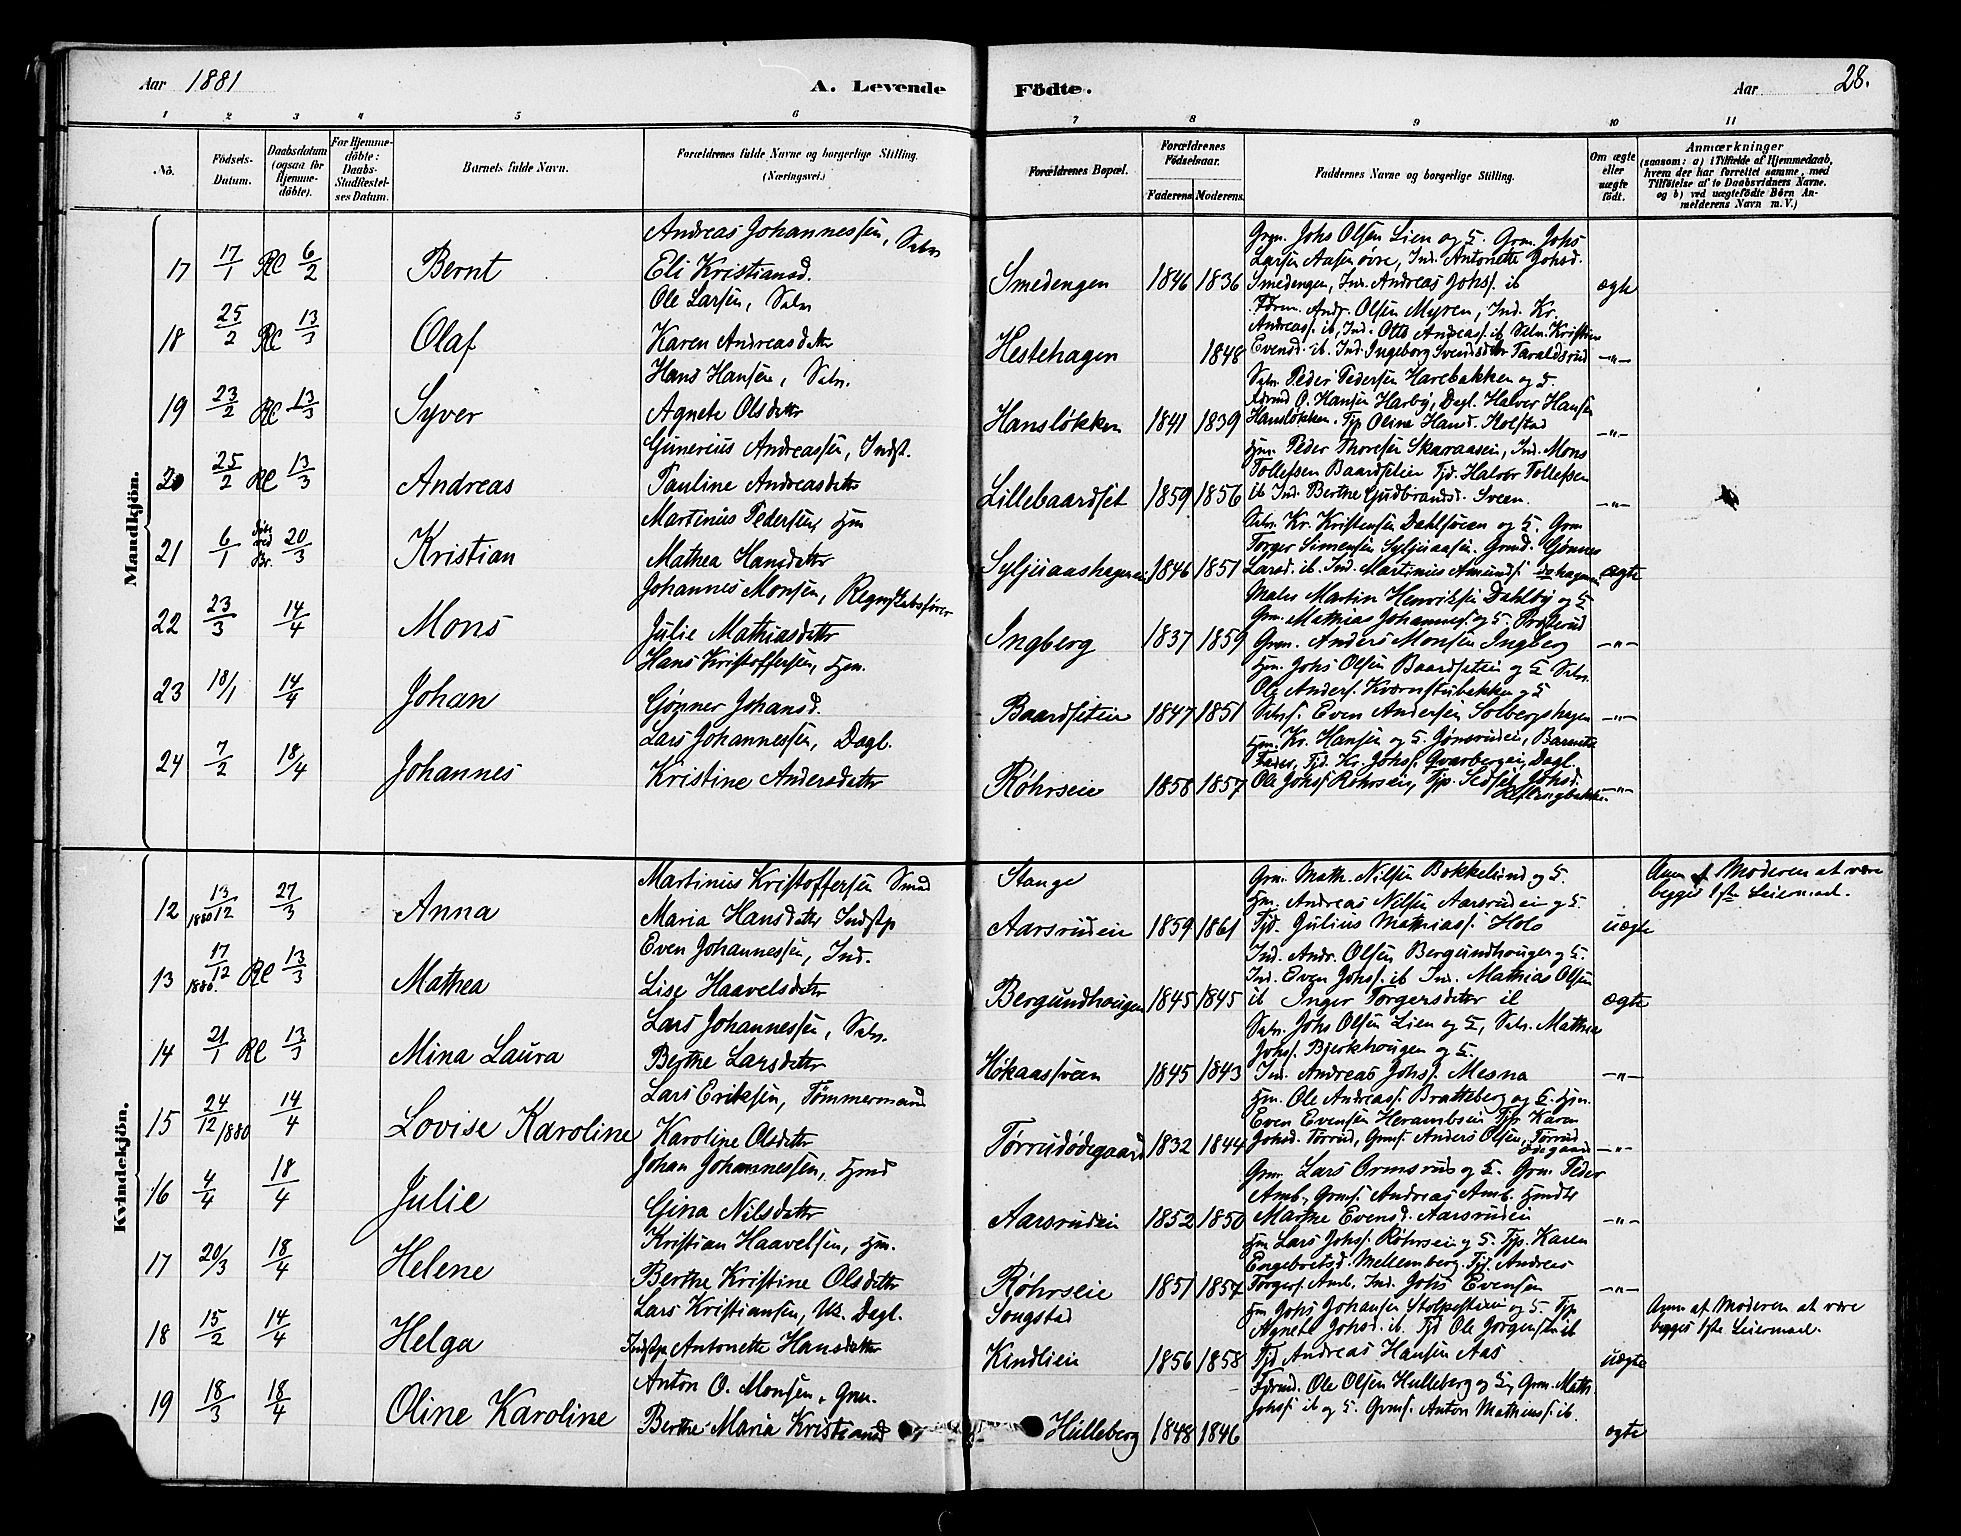 Aar 1881
A. Levende Födte.
Aar
28.
1 2 3 4 5 6 7 8 9 10 11
No.
Födsels-Datum.
Daabsdatum (ogsaa for Hjemme-döbte).
For Hjemme-döbte: Daabs-Stadfæstel-ses Datum.
Barnets fulde Navn.
Forældrenes fulde Navne og borgerlige Stilling. (Næringsvei.)
Forældrenes Bopæl.
Forældrenes Födselsaar.
Faderens. Moderens.
Faddernes Navne og borgerlige Stilling.
Om ægte eller uægte födt.
Anmærkninger
(saasom: a) i Tilfælde af Hjemmedaab,
hvem der har forrettet samme, med
Tilföielse af to Daabsvidners Navne.
og b) ved uægtefödte Börn An-
melderens Navn m. V.)
Mandkjön.
17 17/1 6/2 Bernt
Andreas Johannessen, Selv
Eli Kristiansd.
Smedengen 1846 1836
Grm. Johs Olsen Lien og H. Grm. Johs
Larsen Aasen øvre, Ind. Antonette Johsd.
Smedengen, Ind. Andreas Johs. ib
ægte
18 25/2 13/3 Olaf
Ole Larsen, Selv
Karen Andreasdatter
Hestehagen 1848
Andr. Olsen Myren, Ind. Kr.
Andreass. ib, Ind. Otto Andreass. ib Selv. Kristian
Evensd. ib. Ind. Ingeborg Svendsdtr Taraldsrud
—"—
19 23/2 13/3 Syver
Hans Hansen, Selv.
Agnete Olsdatter
Hansløkken 1841 1839
Selv. Peder Pedersen Harebakken og H.
O. Hansen Harby, Dagl. Halver Hansen
Hansløkken. Tjp Oline Hansd. Holstad
—"—
20 25/2 13/3 Andreas
Gunerius Andreassen, Indst.
Pauline Andreasdatter
Lillebaardset 1859 1856
Hm. Peder Thoresen Skaraasen, Ind. Mons
Tollefsen Baardseteie Tjd. Halvor Tollefsen
ib Ind. Berthe Gudbrandsd. Sveen.
—"—
21 6/1 20/3 Kristian
Martinus Pedersen, Hm
Mathea Hansdatter
Syljuaashagen 1846 1851
Selv. Kr. Kristensen Dahlsveen og H. Grm
Torger Simensen Syljuaasen. Grmd. Gjønnes
Larsd. ib. Ind. Martinus Amunds.
ægte
22 23/3 14/4 Mons
Johannes Monsen, Regnskabsfører
Julie Mathiasdatter
Ingberg 1837 1859
Maler Martin Henriksen Dahlby og H
Grm. Mathias Johannes. og H. Prøserud
Grm. Anders Monsen Ingberg
—"—
23 18/1 14/4 Johan
Hans Kristoffersen, Hm.
Gjønner Johansd.
Baardseteie 1847 1851
Hm. Johs Olsen Baardseteie og H Selv.
Ole Anders. Kværnstubakken og H
Selvs. Even Andersen Solbergshagen
—"—
24 7/2 18/4 Johannes
Lars Johannessen, Dagl.
Kristine Andersdatter
Røhrseie 1858 1857
Hm. Kr. Hansen og H. Gønsrudeie, Barnets
Fader, Tjd. Kr. Johs. Qvarbergeie, Dagl.
Ole Johs. Røhrseie, Tjp. Johsd.
—"—
Kvindekjön.
12 13/12 1880 27/3 Anna
Martinus Kristoffersen Smed
Maria Hansdatter Indstp
Stange
Aarsrudeie 1859 1861
Grm. Math. Nilsen Bakkelund og H.
Hm. Andreas Nilsen Aarsrudeie og H.
Tjd. Julius Mathiass. Holo
uægte
Anm. af Moderen at være
begges 1ste Leiermaal.
13 17/12 1880 13/3 Mathea
Even Johannessen, Ind.
Lise Haavelsdatter
Bergundhougen 1845 1845
Ind. Andr. Olsen Bergundhougen og H.
Ind. Even Johs. ib Ind. Mathias Olsen
ib Inger Torgersdatter ib
ægte
14 21/1 13/3 Mina Laura
Lars Johannessen, Selv.
Berthe Larsdatter
Høkaassveen 1845 1843
Selv. Johs Olsen Lien og H, Selv. Mathea
Johs. Bjerkhougen og H.
Ind. Andreas Johs. Mesna
—"—
15 24/12 1880 14/4 Lovise Karoline
Lars Eriksen, Tømmermand
Karoline Olsdatter
Tørrudødegaard 1832 1844
Hm. Ole Andreass. Bratteberg og H. Hm.
Even Evensen Herambseie Tjp. Karen
Johsd. Tørrud, Grms. Anders Olsen, Tørrud
ødegaard —"—
16 4/4 18/4 Julie
Johan Johannessen, Hmd
Gina Nilsdatter
Aarsrudeie 1852 1850
Grm. Lars Ormsrud og H. Grm. Peder
Amb, Grms. Andreas Amb.
Marthe Evensd. Aarsrudeie
—"—
17 20/3 18/4 Helene
Kristian Haavelsen, Hm.
Berthe Kristine Olsdatter
Røhrseie 1851 1854
Hm Lars Johs. Røhrseie og H. Tjp. Karen
Engebretsd. Mellemberg. Tjd. Andreas
Torgers. Amb, Ind. Johs Evensen
—"—
18 15/2 14/4 Helga
Lars Kristiansen, Uk. Dagl.
Indstp Antonette Hansdatter
Songstad
Kindlien 1856 1858
Hm Johs Johansen Stolpestuen og H Tjp
Agnete Johsd. ib. Tjd Ole Jørgensen ib
Tjd Andreas Hansen Aas
uægte
Anm af Moderen at være
begges 1ste Leiermaal.
19 18/3 18/4 Oline Karoline
Anton O. Monsen, Grm.
Berthe Maria Kristiansd
Hulleberg 1848 1846
Ole Olsen Hulleberg og H, Grm. Math.
Johs. ib og H. Grms. Anton Mathiass. ib.
ægte